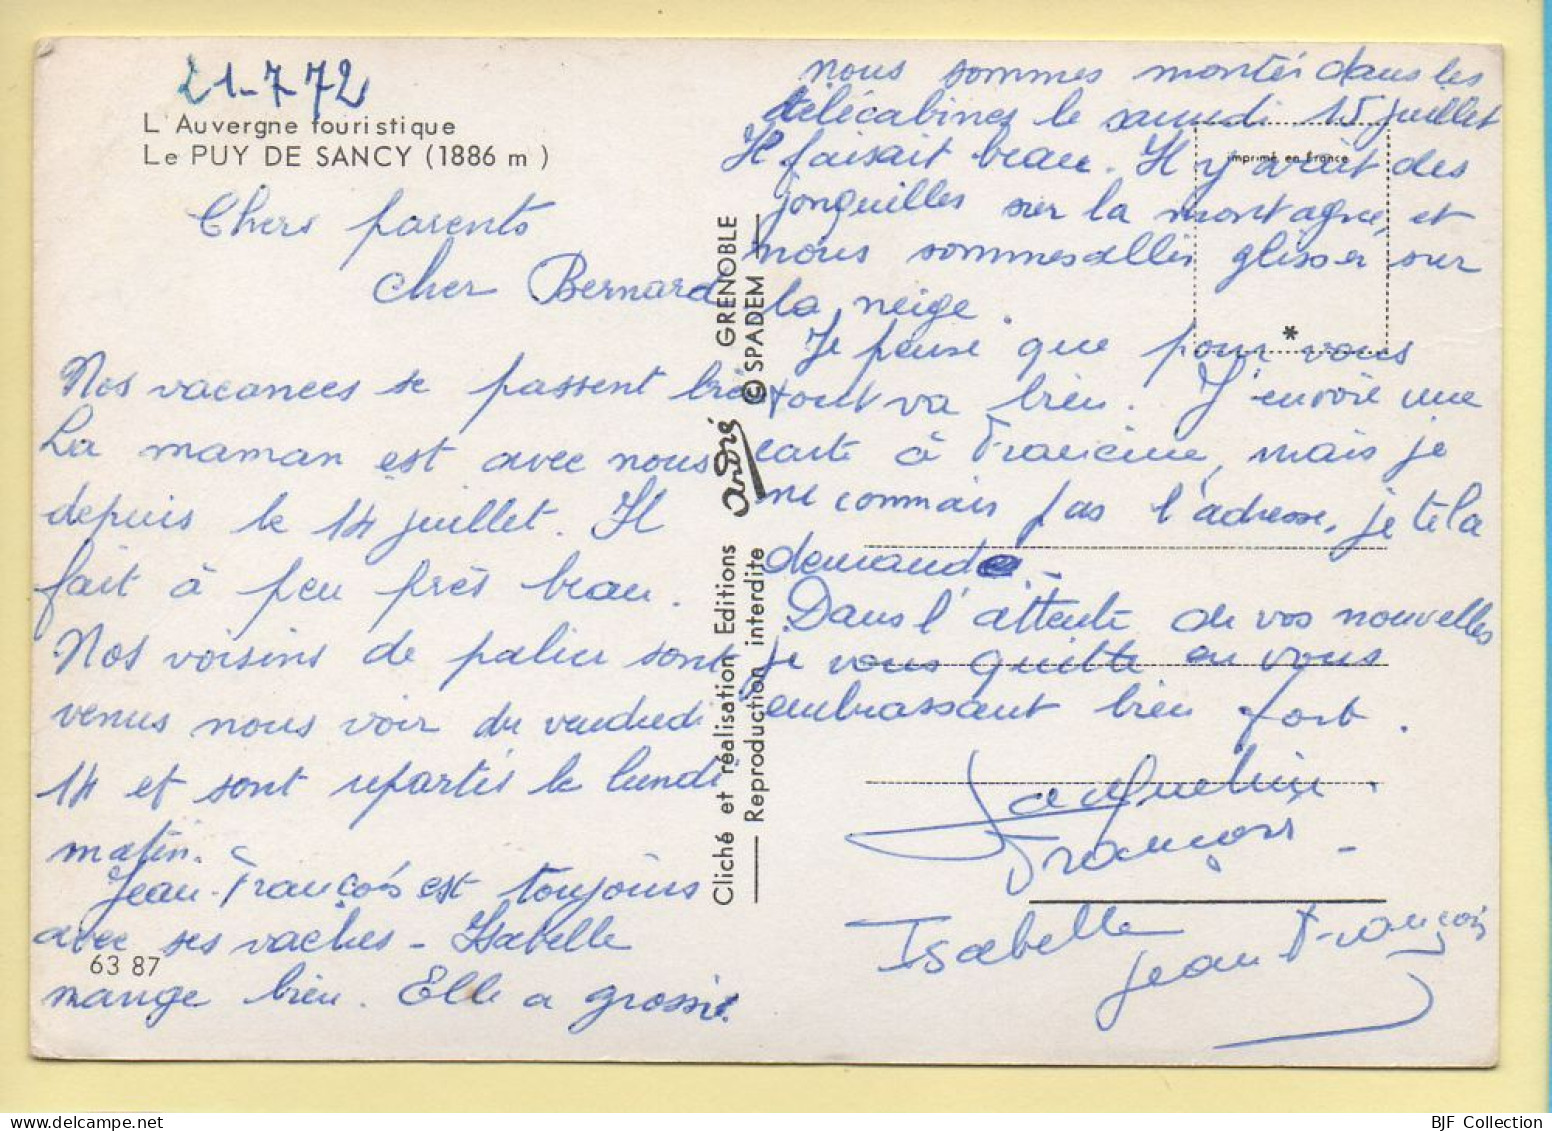 21-7-72
L'Auvergne touristique
Le PUY DE SANCY (1886 m)
Chers parents
cher Bernard
Nos vacances se passent bien
La maman est avec nous
depuis le 14 juillet. Il
fait à peu près beau.
Nos voisins de palier sont
venus nous voir du vendredi
14 et sont repartis le lundi
matin.
Jean-François est toujours
avec ses vaches - Isabelle
mange bien. Elle a grossi.
63 87
Cliché et réalisation Editions andré GRENOBLE
Reproduction interdite © SPADEM
nous sommes montés dans les
télécabines le samedi 15 juillet
Il faisait beau. Il y avait des
jonquilles sur la montagne, et
nous sommes allés glisser sur
la neige.
Je pense que pour vous
tout va bien. J'envoie une
carte à Francine, mais je
ne connais pas l'adresse, je te la
demande.
Dans l'attente de vos nouvelles
je vous quitte en vous
embrassant bien fort.
Jacqueline
François
Isabelle
Jean François
imprimé en france
*
BJF Collection